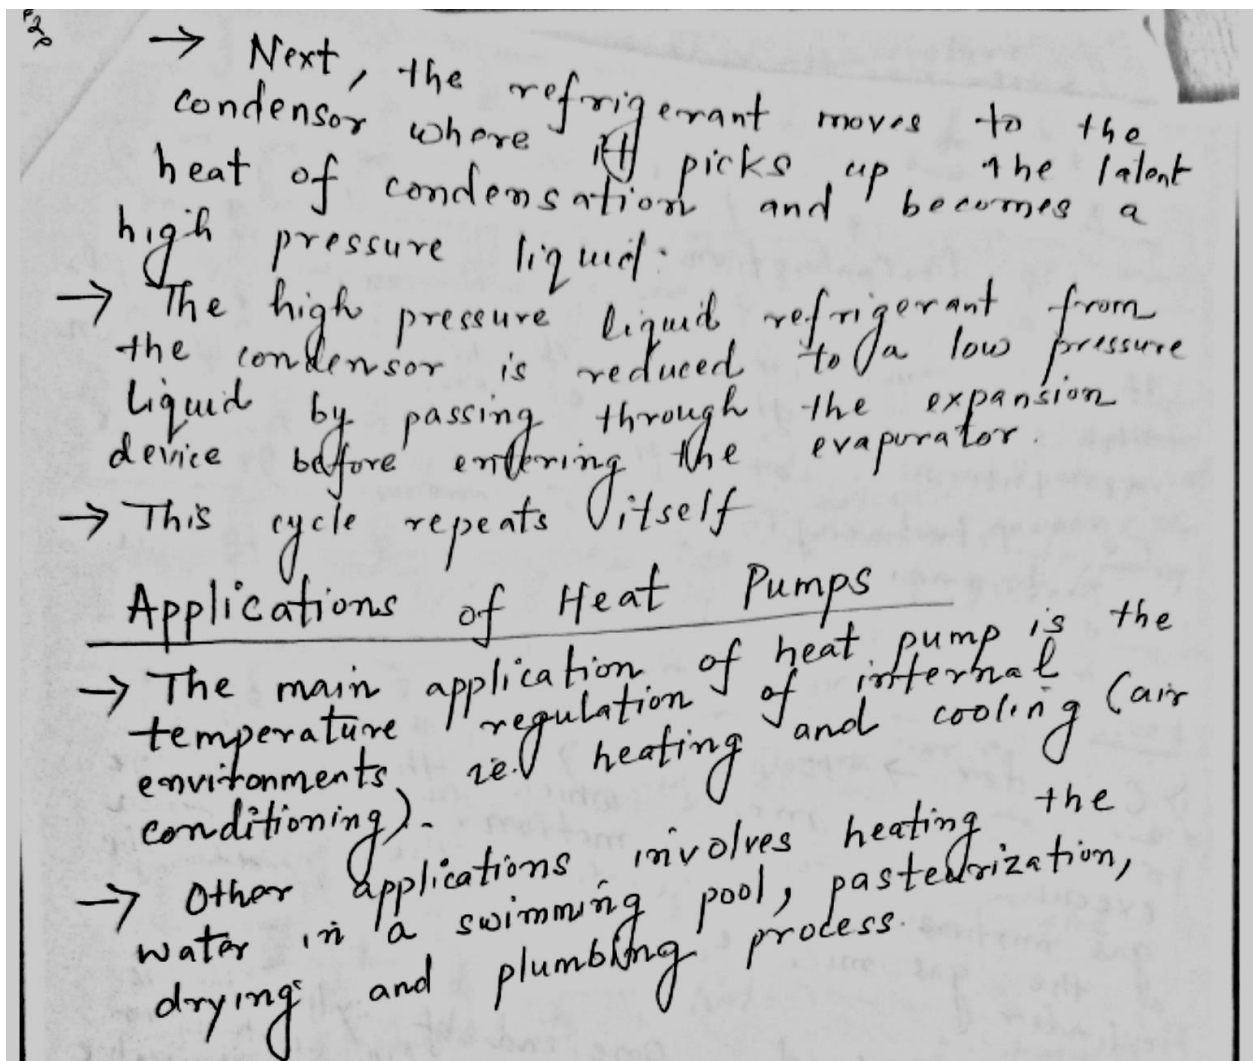 → Next, the refrigerant moves to the
condensor where it picks up the latent
heat of condensation and becomes a
high pressure liquid.
→ The high pressure liquid refrigerant from
the condensor is reduced to a low pressure
liquid by passing through the expansion
device before entering the evaporator.
→ This cycle repeats itself
Applications of Heat Pumps
→ The main application of heat pump is the
temperature regulation of internal
environments ie. heating and cooling (air
conditioning).
→ Other applications involves heating the
water in a swimming pool, pasteurization,
drying and plumbing process.